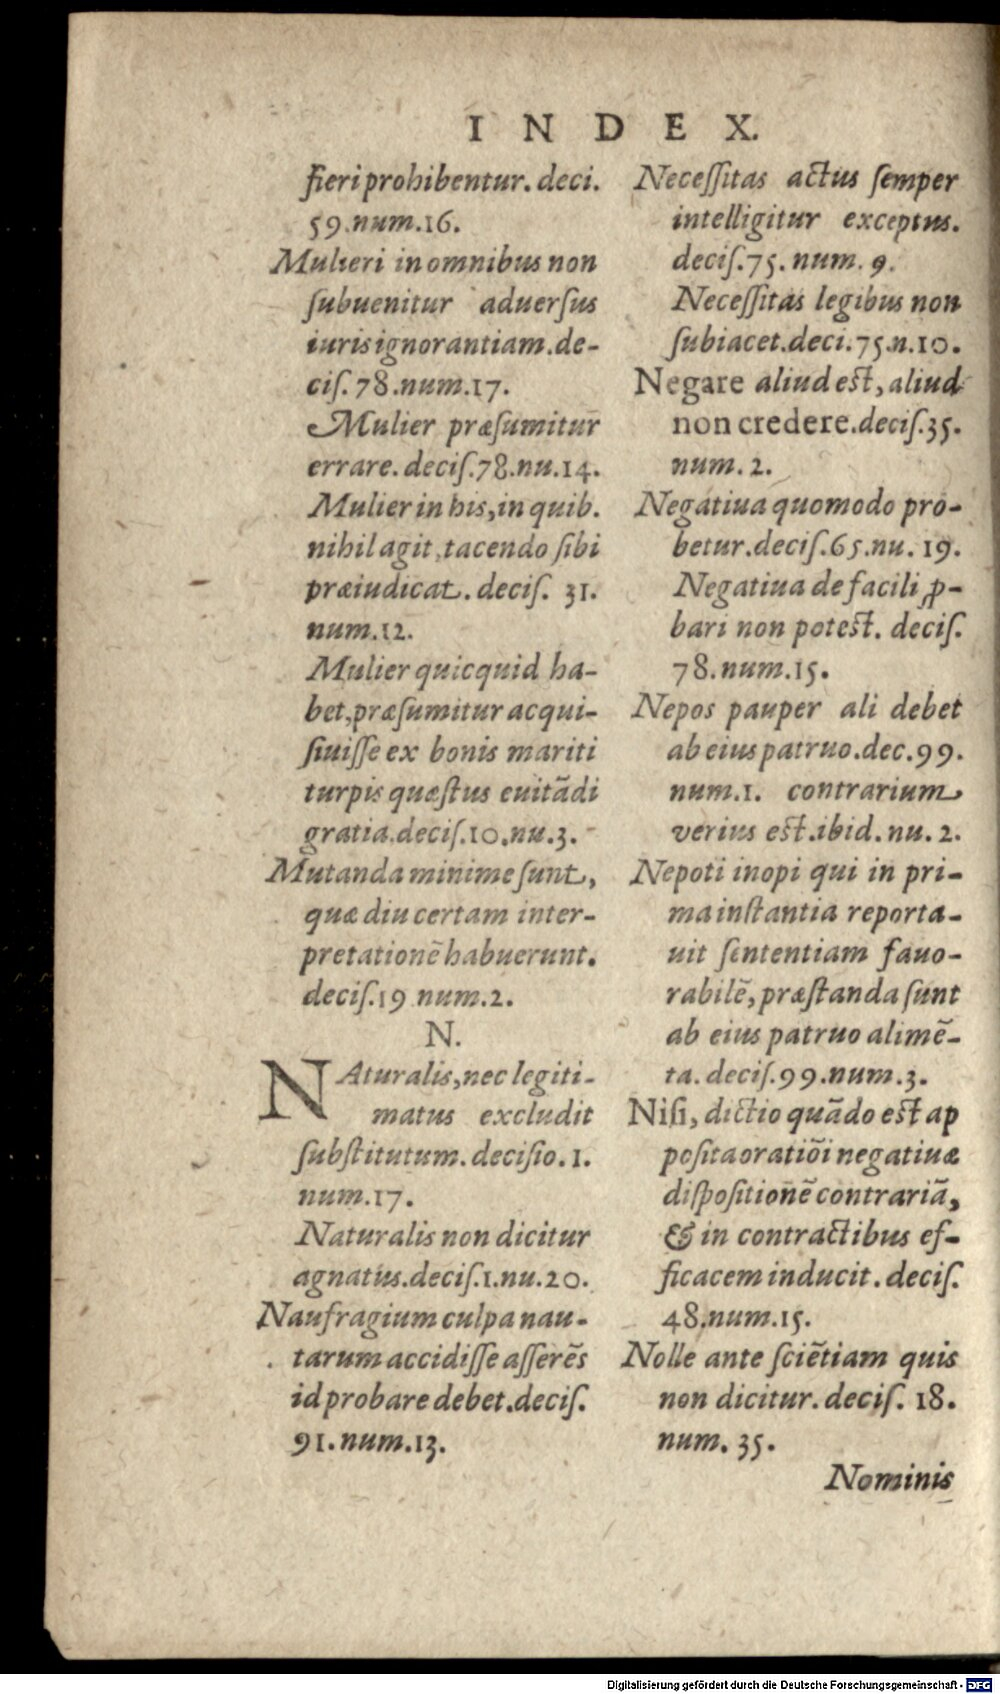 INDEX.
fieri prohibentur. deci.
59. num. 16.
Mulieri in omnibus non
ſubuenitur aduerſus
iuris ignorantiam. de-
ciſ. 78. num. 17.
Mulier præſumitur
errare. deciſ. 78. nu. 14.
Mulier in his, in quib.
nihil agit, tacendo ſibi
præiudicat. deciſ. 31.
num. 12.
Mulier quicquid ha-
bet, præſumitur acqui-
ſiuiſſe ex bonis mariti
turpis quæſtus euitādi
gratia. deciſ. 10. nu. 3.
Mutanda minime ſunt,
quæ diu certam inter-
pretationē habuerunt.
deciſ. 19 num. 2.
N.
NAturalis, nec legiti-
matus excludit
ſubſtitutum. deciſio. 1.
num. 17.
Naturalis non dicitur
agnatus. deciſ. 1. nu. 20.
Naufragium culpa nau-
tarum accidiſſe aſſerēs
id probare debet. deciſ.
91. num. 13.
Neceſſitas actus ſemper
intelligitur exceptus.
deciſ. 75. num. 9.
Neceſſitas legibus non
ſubiacet. deci. 75. n. 10.
Negare aliud est, aliud
non credere. deciſ. 35.
num. 2.
Negatiua quomodo pro-
betur. deciſ. 65. nu. 19.
Negatiua de facili ꝓ-
bari non potest. deciſ.
78. num. 15.
Nepos pauper ali debet
ab eius patruo. dec. 99.
num. 1. contrarium
verius est. ibid. nu. 2.
Nepoti inopi qui in pri-
ma inſtantia reporta-
uit ſententiam fauo-
rabilē, præſtanda ſunt
ab eius patruo alimē-
ta. deciſ. 99. num. 3.
Niſi, dictio quādo est ap
poſita oratiōi negatiuæ
diſpoſitionē contrariā,
& in contractibus ef-
ficacem inducit. deciſ.
48. num. 15.
Nolle ante ſciētiam quis
non dicitur. deciſ. 18.
num. 35.
Nominis
Digitalisierung gefördert durch die Deutsche Forschungsgemeinschaft - DFG